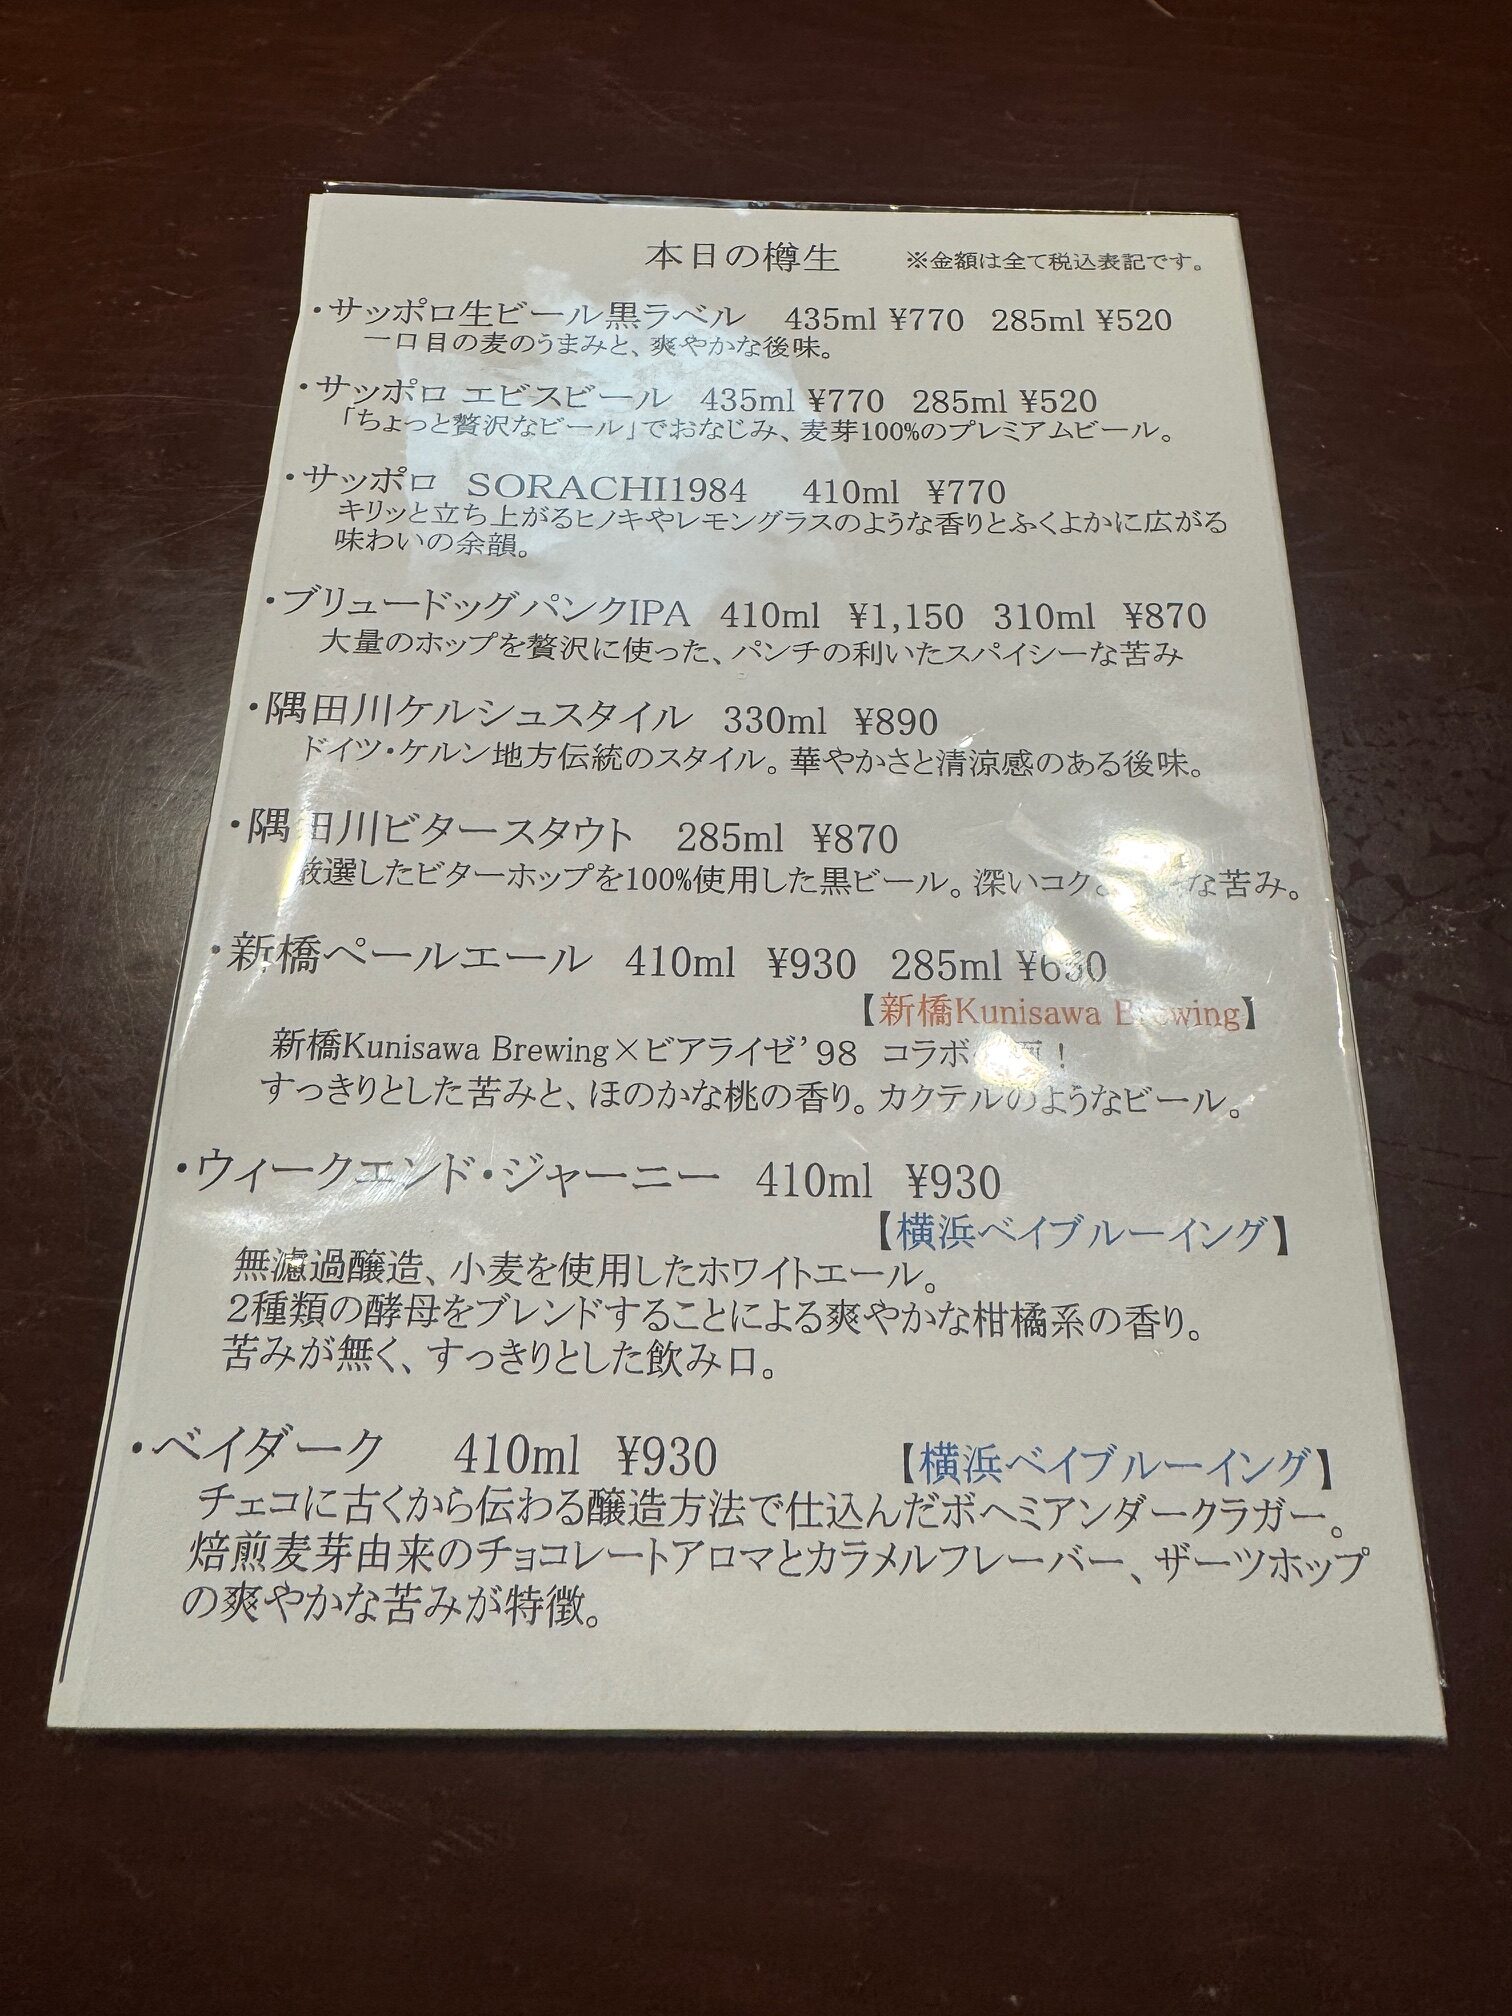 本日の樽生　※金額は全て税込表記です。
・サッポロ生ビール黒ラベル　435ml ¥770　285ml ¥520
一口目の麦のうまみと、爽やかな後味。
・サッポロ エビスビール　435ml ¥770　285ml ¥520
「ちょっと贅沢なビール」でおなじみ、麦芽100%のプレミアムビール。
・サッポロ　SORACHI1984　410ml　¥770
キリッと立ち上がるヒノキやレモングラスのような香りとふくよかに広がる
味わいの余韻。
・ブリュードッグパンクIPA　410ml　¥1,150　310ml　¥870
大量のホップを贅沢に使った、パンチの利いたスパイシーな苦み
・隅田川ケルシュスタイル　330ml　¥890
ドイツ・ケルン地方伝統のスタイル。華やかさと清涼感のある後味。
・隅田川ビタースタウト　285ml　¥870
厳選したビターホップを100%使用した黒ビール。深いコク な苦み。
・新橋ペールエール　410ml　¥930　285ml
【新橋Kunisawa Brewing】
新橋Kunisawa Brewing×ビアライゼ’98　コラボ ！
すっきりとした苦みと、ほのかな桃の香り。カクテルのようなビール。
・ウィークエンド・ジャーニー　410ml　¥930
【横浜ベイブルーイング】
無濾過醸造、小麦を使用したホワイトエール。
2種類の酵母をブレンドすることによる爽やかな柑橘系の香り。
苦みが無く、すっきりとした飲み口。
・ベイダーク　410ml　¥930　【横浜ベイブルーイング】
チェコに古くから伝わる醸造方法で仕込んだボヘミアンダークラガー。
焙煎麦芽由来のチョコレートアロマとカラメルフレーバー、ザーツホップ
の爽やかな苦みが特徴。